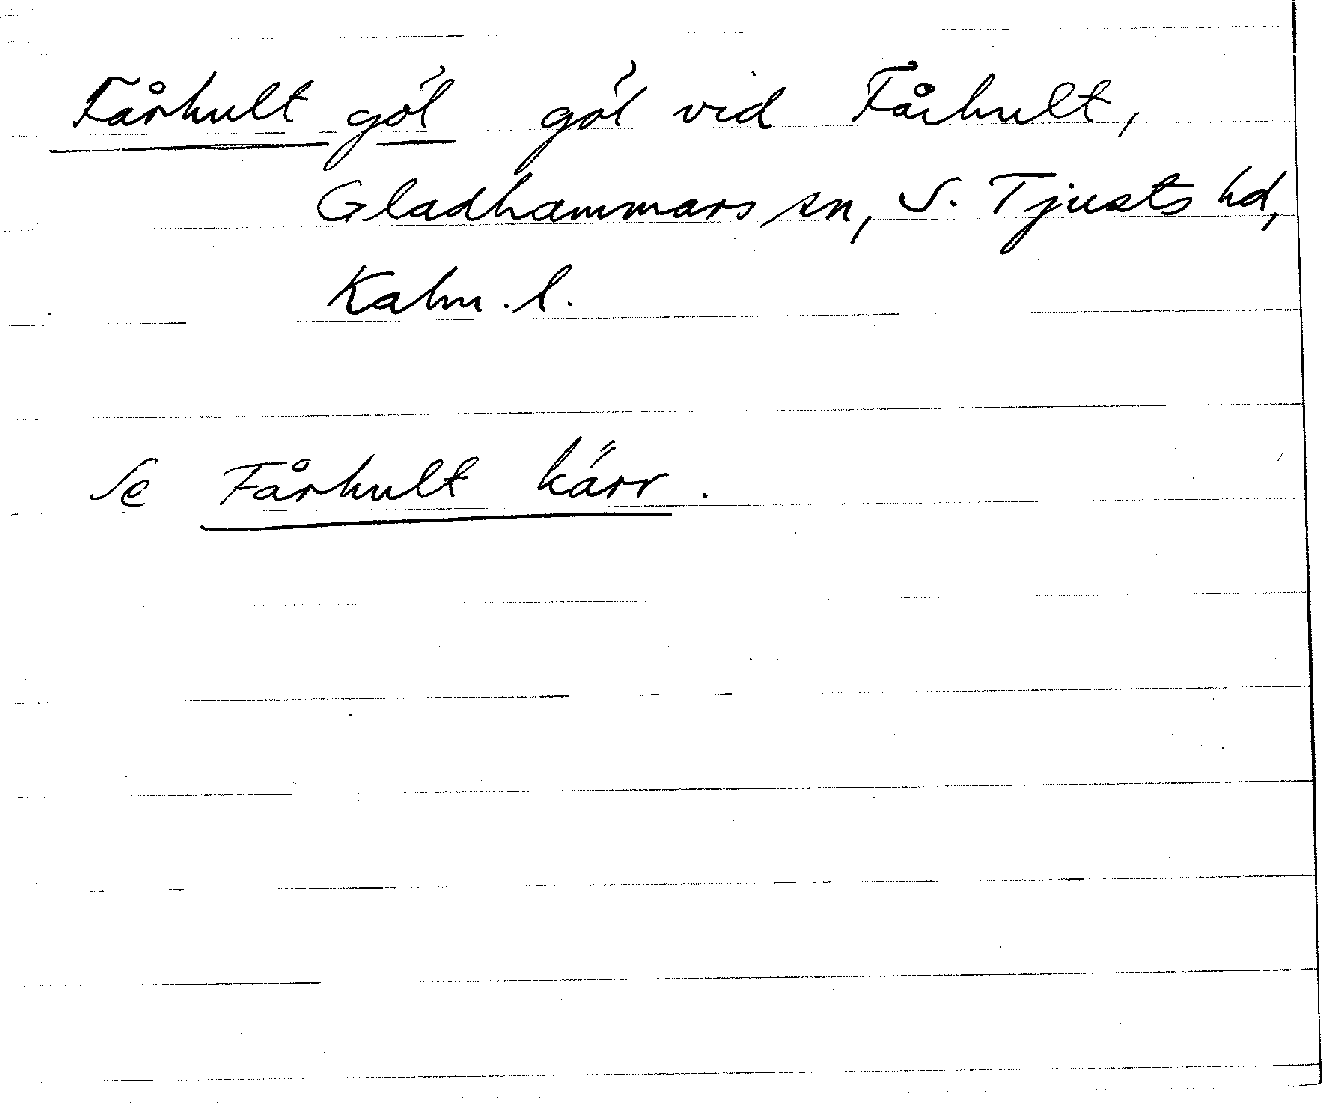 Fårhult göl göl vid Fårhult,
Gladhammars sn, S. Tjusts hd,
Kalm. l.
Se Fårhult kärr.